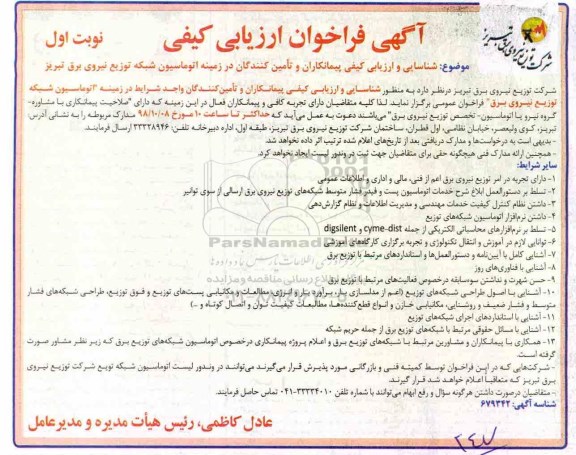 آگهی فراخوان ارزیابی کیفی
نوبت اول
شرکت توزیع نیروی برق تبریز
موضوع: شناسایی و ارزیابی کیفی پیمانکاران و تأمین کنندگان در زمینه اتوماسیون شبکه توزیع نیروی برق تبریز
شرکت توزیع نیروی برق تبریز در نظر دارد به منظور شناسایی و ارزیابی کیفی پیمانکاران و تأمین‌کنندگان واجد شرایط در زمینه "اتوماسیون شبکه
توزیع نیروی برق" فراخوان عمومی برگزار نماید. لذا کلیه متقاضیان دارای تجربه کافی و پیمانکاران فعال در این زمینه که دارای "صلاحیت پیمانکاری یا مشاوره-
گروه نیرو یا اتوماسیون- تخصص توزیع نیروی برق" می‌باشند دعوت به عمل می‌آید که حداکثر تا ساعت ۱۰ مورخ ۹۸/۱۰/۰۸ مدارک مربوطه را به نشانی آدرس:
تبریز، کوی ولیعصر، خیابان نظامی، اول قطران، ساختمان شرکت توزیع نیروی برق تبریز، طبقه اول، اداره دبیرخانه تلفن: ۳۳۳۲۸۹۴۶ ارسال فرمایند.
- بدیهی است به درخواست‌ها و مدارک دریافتی بعد از تاریخ‌های اعلام شده ترتیب اثر داده نخواهد شد.
- همچنین ارائه مدارک فنی هیچگونه حقی برای متقاضیان جهت ثبت در وندور لیست ایجاد نخواهد کرد.
سایر شرایط:
۱- دارای تجربه در امر توزیع نیروی برق اعم از فنی، مالی و اداری و اطلاعات عمومی
۲- تسلط بر دستورالعمل ابلاغ شرح خدمات اتوماسیون پست و فیدر فشار متوسط شبکه‌های توزیع نیروی برق ارسالی از سوی توانیر
۳- داشتن نظام کنترل کیفیت خدمات مهندسی و مدیریت اطلاعات و نظام گزارش‌دهی
۴- داشتن نرم‌افزار اتوماسیون شبکه‌های توزیع
۵- تسلط بر نرم‌افزارهای محاسباتی الکتریکی از جمله cyme-dist و digsilent
۶- توانایی لازم در آموزش و انتقال تکنولوژی و تجربه برگزاری کارگاه‌های آموزشی
۷- آشنایی کامل با آیین‌نامه و دستورالعمل‌ها و استانداردهای مرتبط با توزیع برق
۸- آشنایی با فناوری‌های روز
۹- حسن شهرت و نداشتن سوءسابقه درخصوص فعالیت‌های مرتبط با توزیع برق
۱۰- آشنایی با اصول طراحی شبکه‌های توزیع (اعم از مدلسازی بار، برآورد بار و انرژی، مطالعات و مکانیابی پست‌های توزیع و فوق توزیع، طراحی شبکه‌های فشار
متوسط و فشار ضعیف و روشنایی، مکانیابی خازن و انواع قطع‌کننده‌ها، مطالعات کیفیت توان و اتصال کوتاه و ...)
۱۱- آشنایی با استانداردهای اجرای شبکه‌های توزیع
۱۲- آشنایی با مسائل حقوقی مرتبط با شبکه‌های توزیع برق از جمله حریم شبکه
۱۳- همکاری با پیمانکاران و مشاورین مرتبط با شبکه‌های توزیع برق و اعلام پروژه پیمانکاری درخصوص اتوماسیون شبکه‌های توزیع برق که زیر نظر مشاور صورت
گرفته است.
- شرکت‌هایی که در این فراخوان توسط کمیته فنی و بازرگانی مورد پذیرش قرار می‌گیرند می‌توانند در وندور لیست اتوماسیون شبکه توزیع شرکت توزیع نیروی
برق تبریز که متعاقباً اعلام خواهد شد قرار گیرند.
- متقاضیان درصورت داشتن هرگونه سؤال و رفع ابهام می‌توانند با شماره تلفن ۳۳۳۳۴۰۱۰-۰۴۱ تماس حاصل فرمایند.
شناسه آگهی: ۶۷۹۳۴۲
عادل کاظمی، رئیس هیأت مدیره و مدیرعامل
ParsNamadData